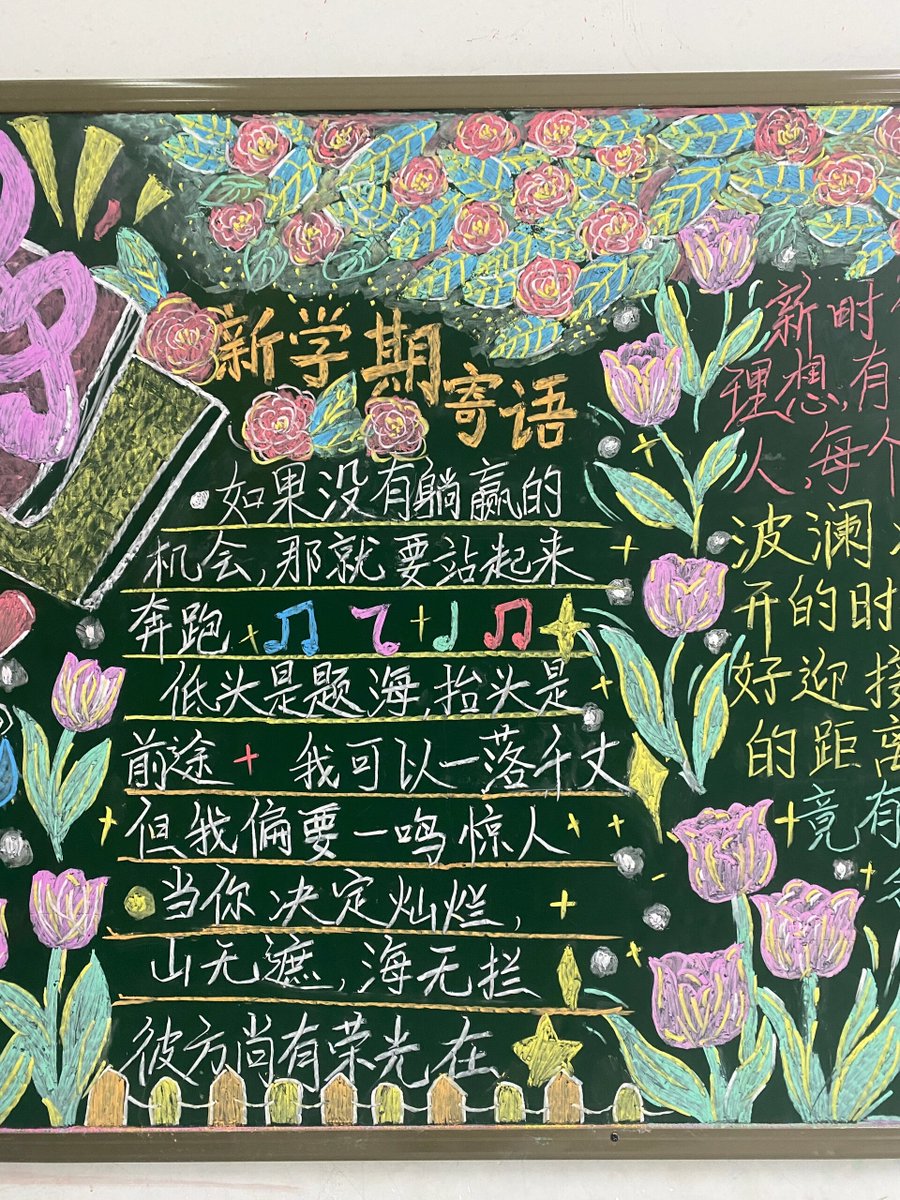 新学期
寄语
如果没有躺赢的
机会,那就要站起来
奔跑
低头是题海,抬头是
前途 我可以一落千丈
但我偏要一鸣惊人
当你决定灿烂,
山无遮,海无拦
彼方尚有荣光在
新时
理想,有
人,每个
波澜
开的时
好迎接
的距离
竟有